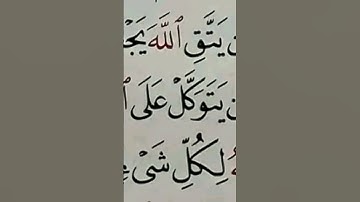 يَتَّقِ ٱللَّهَ يَجْ
يَتَوَكَّلْ عَلَى ٱ
لِكُلِّ شَىْ